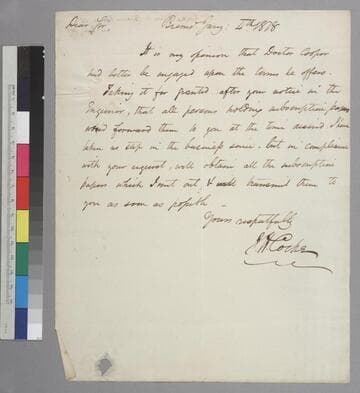 Dear Sir, Bremo Jany: 4th 1818
It is my opinion that Doctor Cooper
had better be engaged upon the terms he offers.
Taking it for granted after your notice in the
Enquirer, that all persons holding subscription papers
would forward them to you at the time desired I have
taken no step in the business since. but in compliance
with your request, will obtain all the subscription
papers which I sent out, & will transmit them to
you as soon as possible –
Yours respectfully
J H Cocke